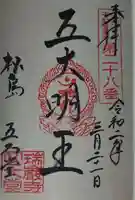 奉拝
令和二年
三月二十一日
五大明王
松島
五大堂
瑞巌寺